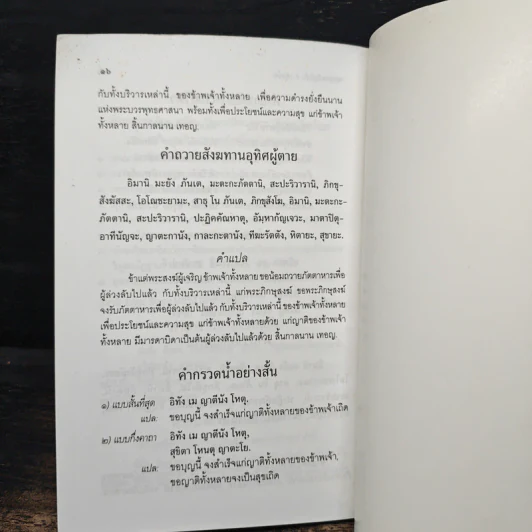 ๑๖
กับทั้งบริวารเหล่านี้ ของข้าพเจ้าทั้งหลาย เพื่อความดำรงยั่งยืนนาน
แห่งพระบวรพุทธศาสนา พร้อมทั้งเพื่อประโยชน์และความสุข แก่ข้าพเจ้า
ทั้งหลาย สิ้นกาลนาน เทอญ.
คำถวายสังฆทานอุทิศผู้ตาย
อิมานิ มะยัง ภันเต, มะตะกะภัตตานิ, สะปะริวารานิ, ภิกขุ-
สังฆัสสะ, โอโณชะยามะ, สาธุ โน ภันเต, ภิกขุสังโฆ, อิมานิ, มะตะกะ-
ภัตตานิ, สะปะริวารานิ, ปะฏิคคัณหาตุ, อัมหากัญเจวะ, มาตาปิตุ-
อาทีนัญจะ, ญาตะกานัง, กาละกะตานัง, ทีฆะรัตตัง, หิตายะ, สุขายะ.
คำแปล
ข้าแต่พระสงฆ์ผู้เจริญ ข้าพเจ้าทั้งหลาย ขอน้อมถวายภัตตาหารเพื่อ
ผู้ล่วงลับไปแล้ว กับทั้งบริวารเหล่านี้ แก่พระภิกษุสงฆ์ ขอพระภิกษุสงฆ์
จงรับภัตตาหารเพื่อผู้ล่วงลับไปแล้ว กับทั้งบริวารเหล่านี้ ของข้าพเจ้าทั้งหลาย
เพื่อประโยชน์และความสุข แก่ข้าพเจ้าทั้งหลายด้วย แก่ญาติของข้าพเจ้า
ทั้งหลาย มีมารดาบิดาเป็นต้นผู้ล่วงลับไปแล้วด้วย สิ้นกาลนาน เทอญ.
คำกรวดน้ำอย่างสั้น
๑) แบบสั้นที่สุด อิทัง เม ญาตีนัง โหตุ.
แปล: ขอบุญนี้ จงสำเร็จแก่ญาติทั้งหลายของข้าพเจ้าเถิด
๒) แบบกึ่งคาถา อิทัง เม ญาตีนัง โหตุ,
สุขิตา โหนตุ ญาตะโย.
แปล: ขอบุญนี้ จงสำเร็จแก่ญาติทั้งหลายของข้าพเจ้า,
ขอญาติทั้งหลายจงเป็นสุขเถิด